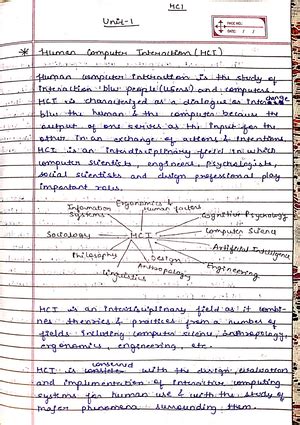 HCI
Unit-1
PAGE NO.:
DATE: / /
* Human Computer Interaction (HCI)
Human computer interaction is the study of
interaction b/w people (users) and computers.
HCI is characterized as a dialogue or interchange
b/w the human & the computer because the
output of one serves as the input for the
other in an exchange of actions & intentions.
HCI is an interdisciplinary field in which
computer scientists, engineers, psychologists,
social scientists and design professional play
important roles.
Information Systems
Ergonomics & human factors
Cognitive Psychology
Sociology
HCI
Computer Science
Artificial Intelligence
Philosophy
Design
Engineering
Anthropology
Linguistics
HCI is an interdisciplinary field as it combi-
nes theories & practices from a number of
fields including computer science, anthropology,
ergonomics, engineering, etc.
concerned
HCI is with the design, evaluation
and implementation of interactive computing
systems for human use & with the study of
major phenomena surrounding them.